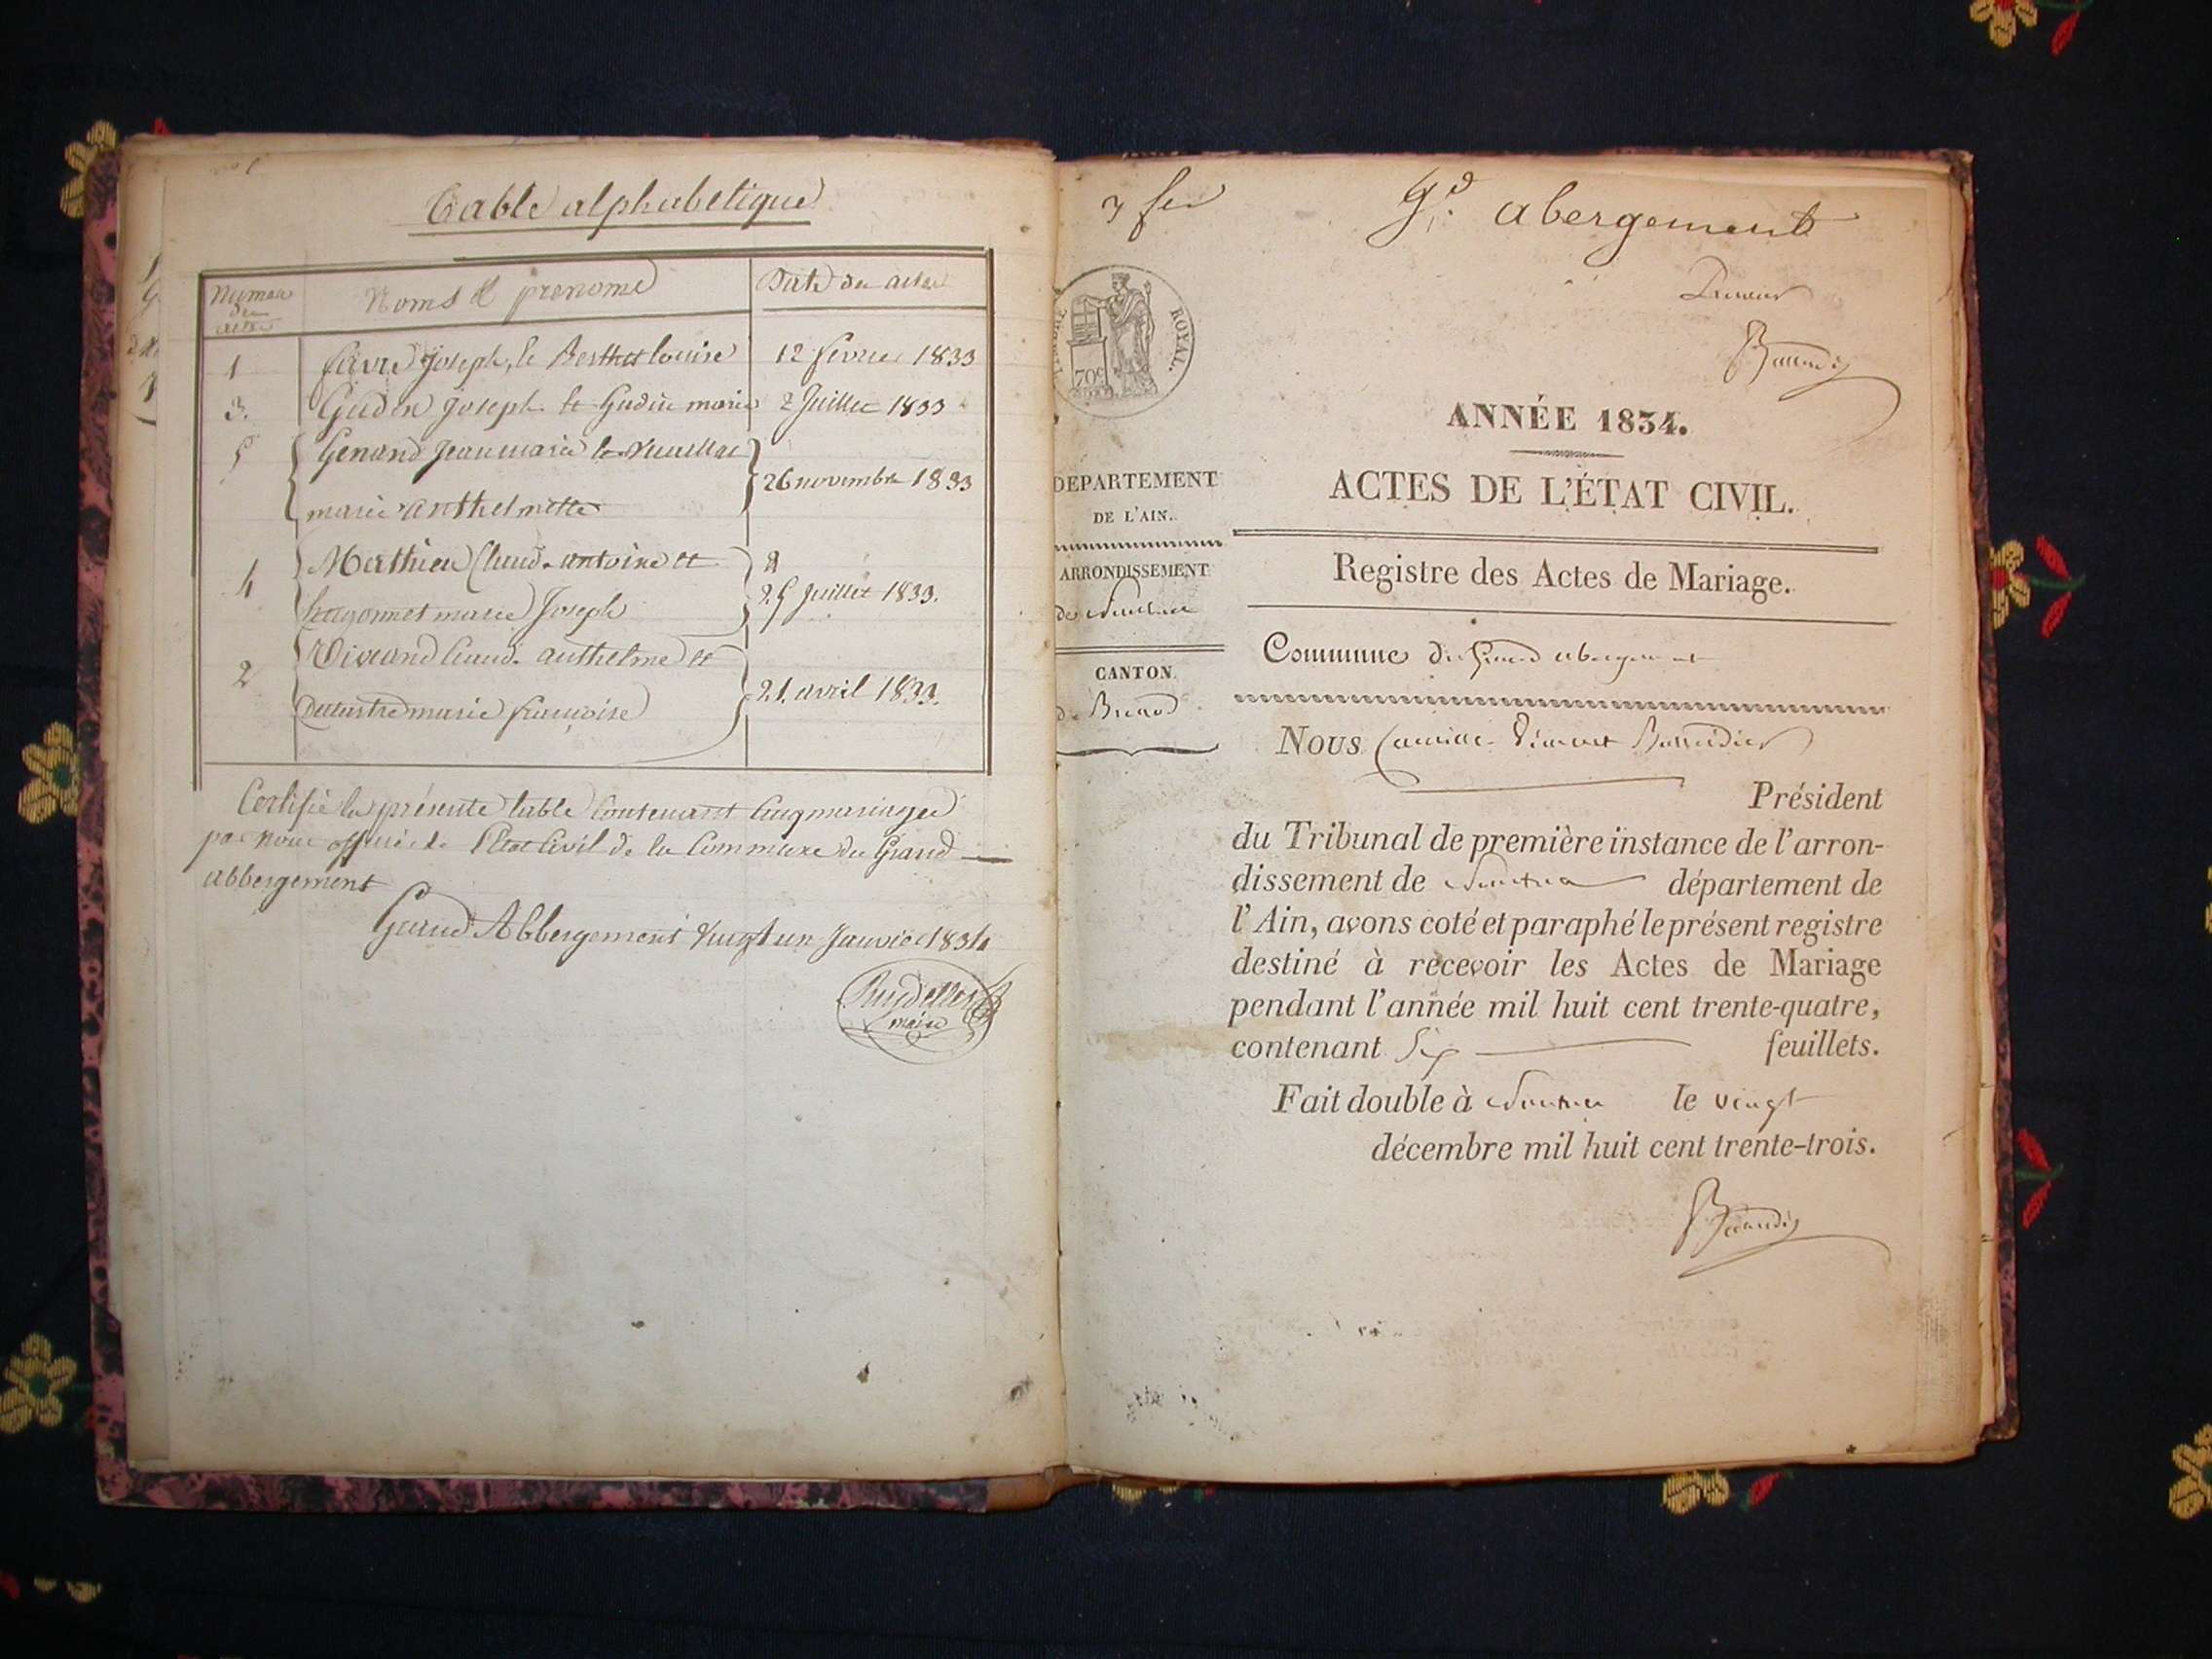 Table alphabetique
Numero des actes
Noms et prenoms
Date des actes
1 favre Joseph, et Berthet louise 12 fevrier 1833
3. Gudin Joseph et Gudin marie 2 Juillet 1833
5 Genand Jean marie et
marie anthelmette 26 novembre 1833
4 Mathieu Claud. antoine et
marie Joseph 25 Juillet 1833.
2 Claud. anthelme et
marie françoise 21. avril 1833.
Certifié la présente table Contenant Cinq mariages
par nous officié de l'Etat Civil de la Commune du Grand
abbergement
Grand Abbergement vingt un Janvier 1834
maire
G.d abergement
TIMBRE ROYAL.
70c
ANNÉE 1834.
ACTES DE L'ÉTAT CIVIL.
Registre des Actes de Mariage.
DEPARTEMENT
DE L'AIN.
ARRONDISSEMENT
de Nantua
CANTON
de Brenod
Commune du Grand abergement
Nous
Président
du Tribunal de première instance de l'arron-
dissement de Nantua département de
l'Ain, avons coté et paraphé le présent registre
destiné à recevoir les Actes de Mariage
pendant l'année mil huit cent trente-quatre,
contenant Six feuillets.
Fait double à Nantua le vingt
décembre mil huit cent trente-trois.